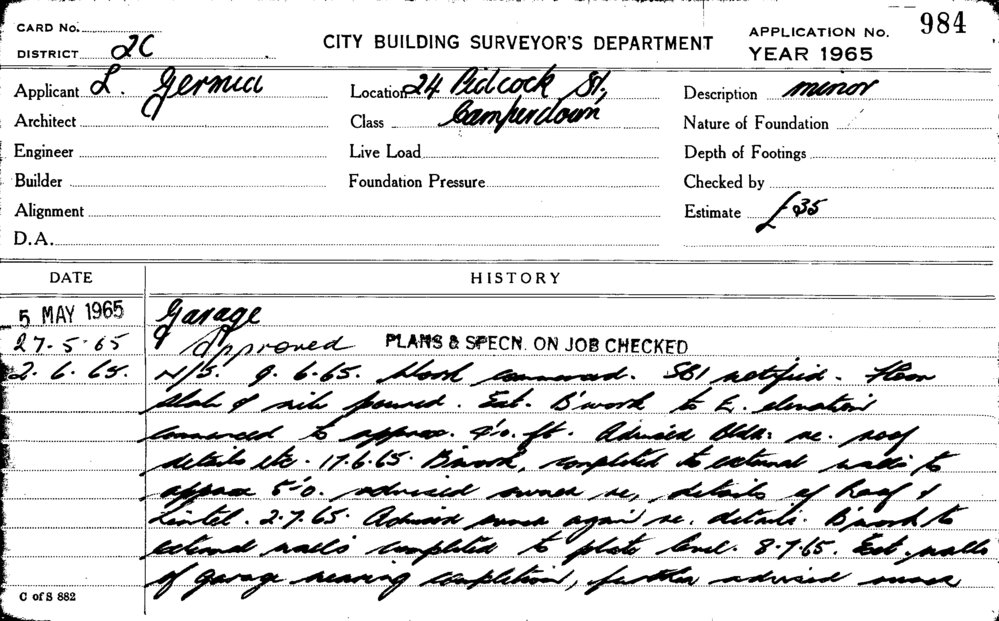 984
CARD No.
DISTRICT 2C
CITY BUILDING SURVEYOR'S DEPARTMENT
APPLICATION No.
YEAR 1965
Applicant L. Germia
Location 24 Pidcock St,
Camperdown
Description minor
Architect
Class
Nature of Foundation
Engineer
Live Load
Depth of Footings
Builder
Foundation Pressure
Checked by
Alignment
Estimate £35
D.A.
DATE
HISTORY
5 MAY 1965 Garage
27-5-65 Approved PLANS & SPECN. ON JOB CHECKED
2.6.65. N/S. 9.6.65. Work commenced. SBI notified. Floor
slab & poured. Ext. B'work to E. elevation
commenced to approx. 4'0. ft. Advised Bldr: re. roof
details etc. 17.6.65. B'work, completed to external walls to
approx 5'0. advised owner re, details of Roof &
Lintel. 2.7.65. Advised owner again re. details. B'work to
external walls completed to plate level. 8.7.65. Ext. walls
of garage nearing completion, further advised owner
C of S 882